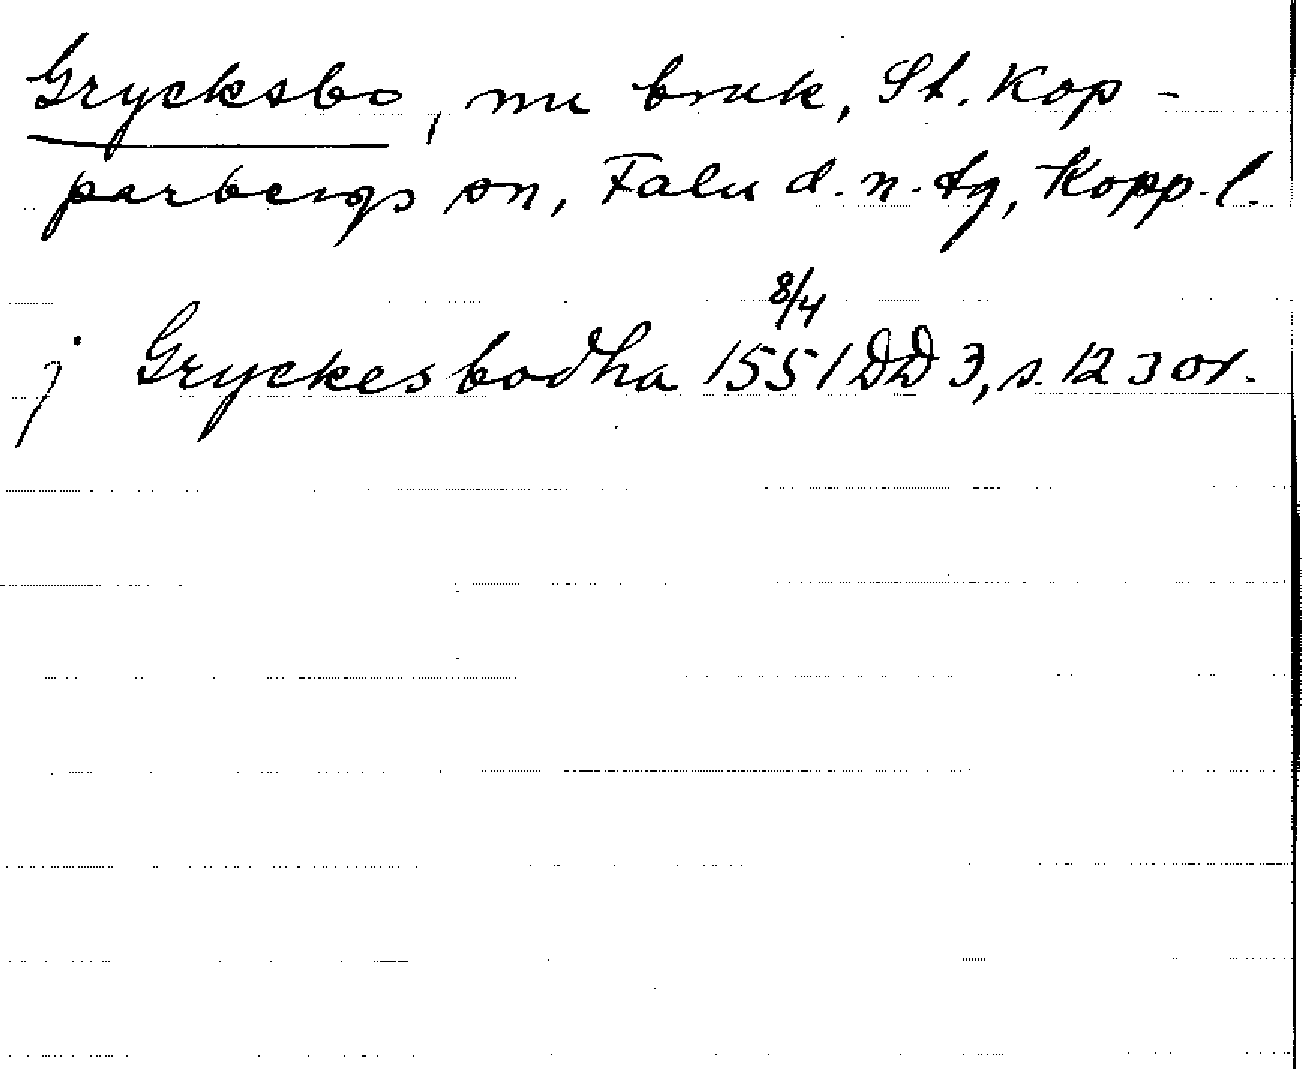 Grycksbo, nu bruk, St. Kop-
parbergs sn, Falu d.n. tg, Kopp. l.
j Gryckesbodha 8/4 1551 DD 3, s. 123 or.